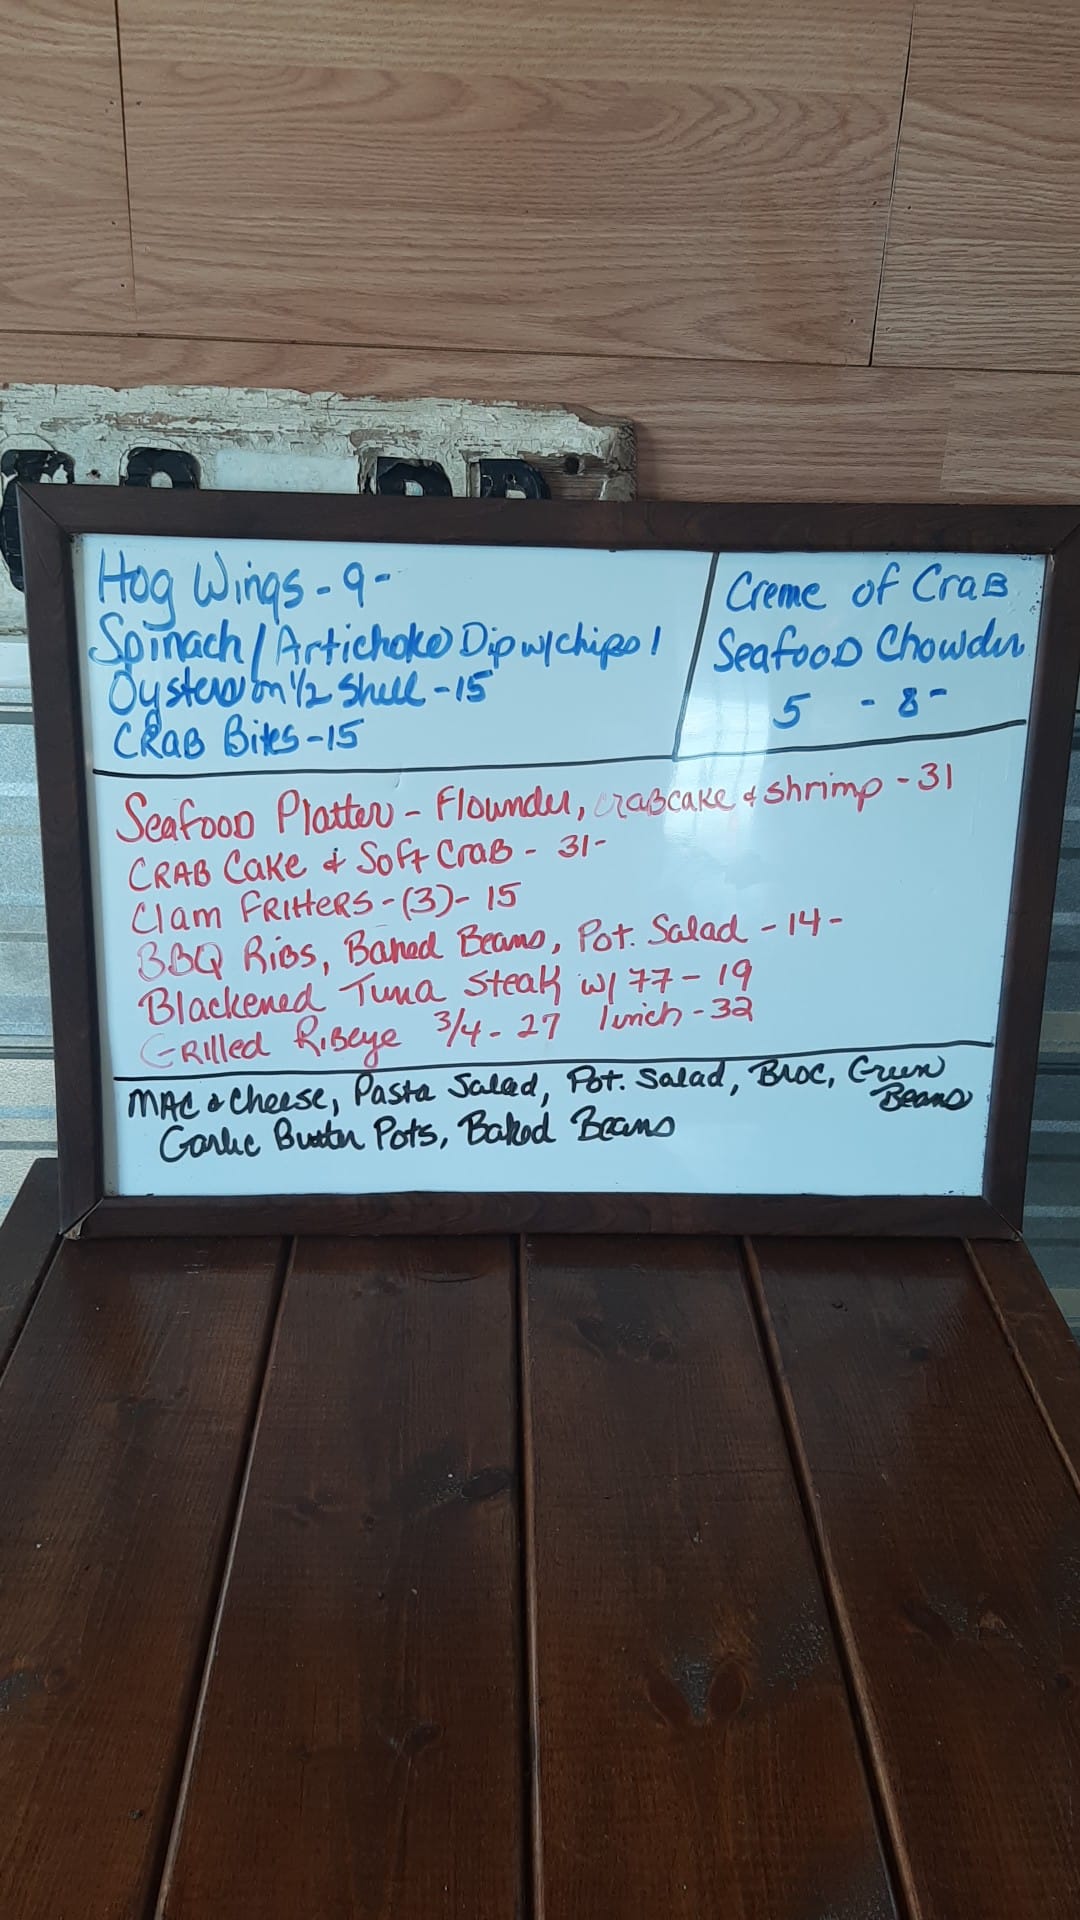 Hog Wings - 9 -
Spinach / Artichoke Dip w/chips 1
Oysters on 1/2 Shell - 15
CRAB Bites - 15
Creme of CraB
SeafooD Chowder
5 - 8 -
SeafooD Platter - Flounder, crabcake & shrimp - 31
CRAB Cake & Soft CraB - 31 -
Clam FRitteRS - (3) - 15
BBQ RiBs, Baked Beans, Pot. Salad - 14 -
Blackened Tuna Steak w/ - 19
GRilled RiBeye 3/4 - 27 1 inch - 32
MAC & Cheese, Pasta Salad, Pot. Salad, Broc, Green
Beans
Garlic Butter Pots, Baked Beans